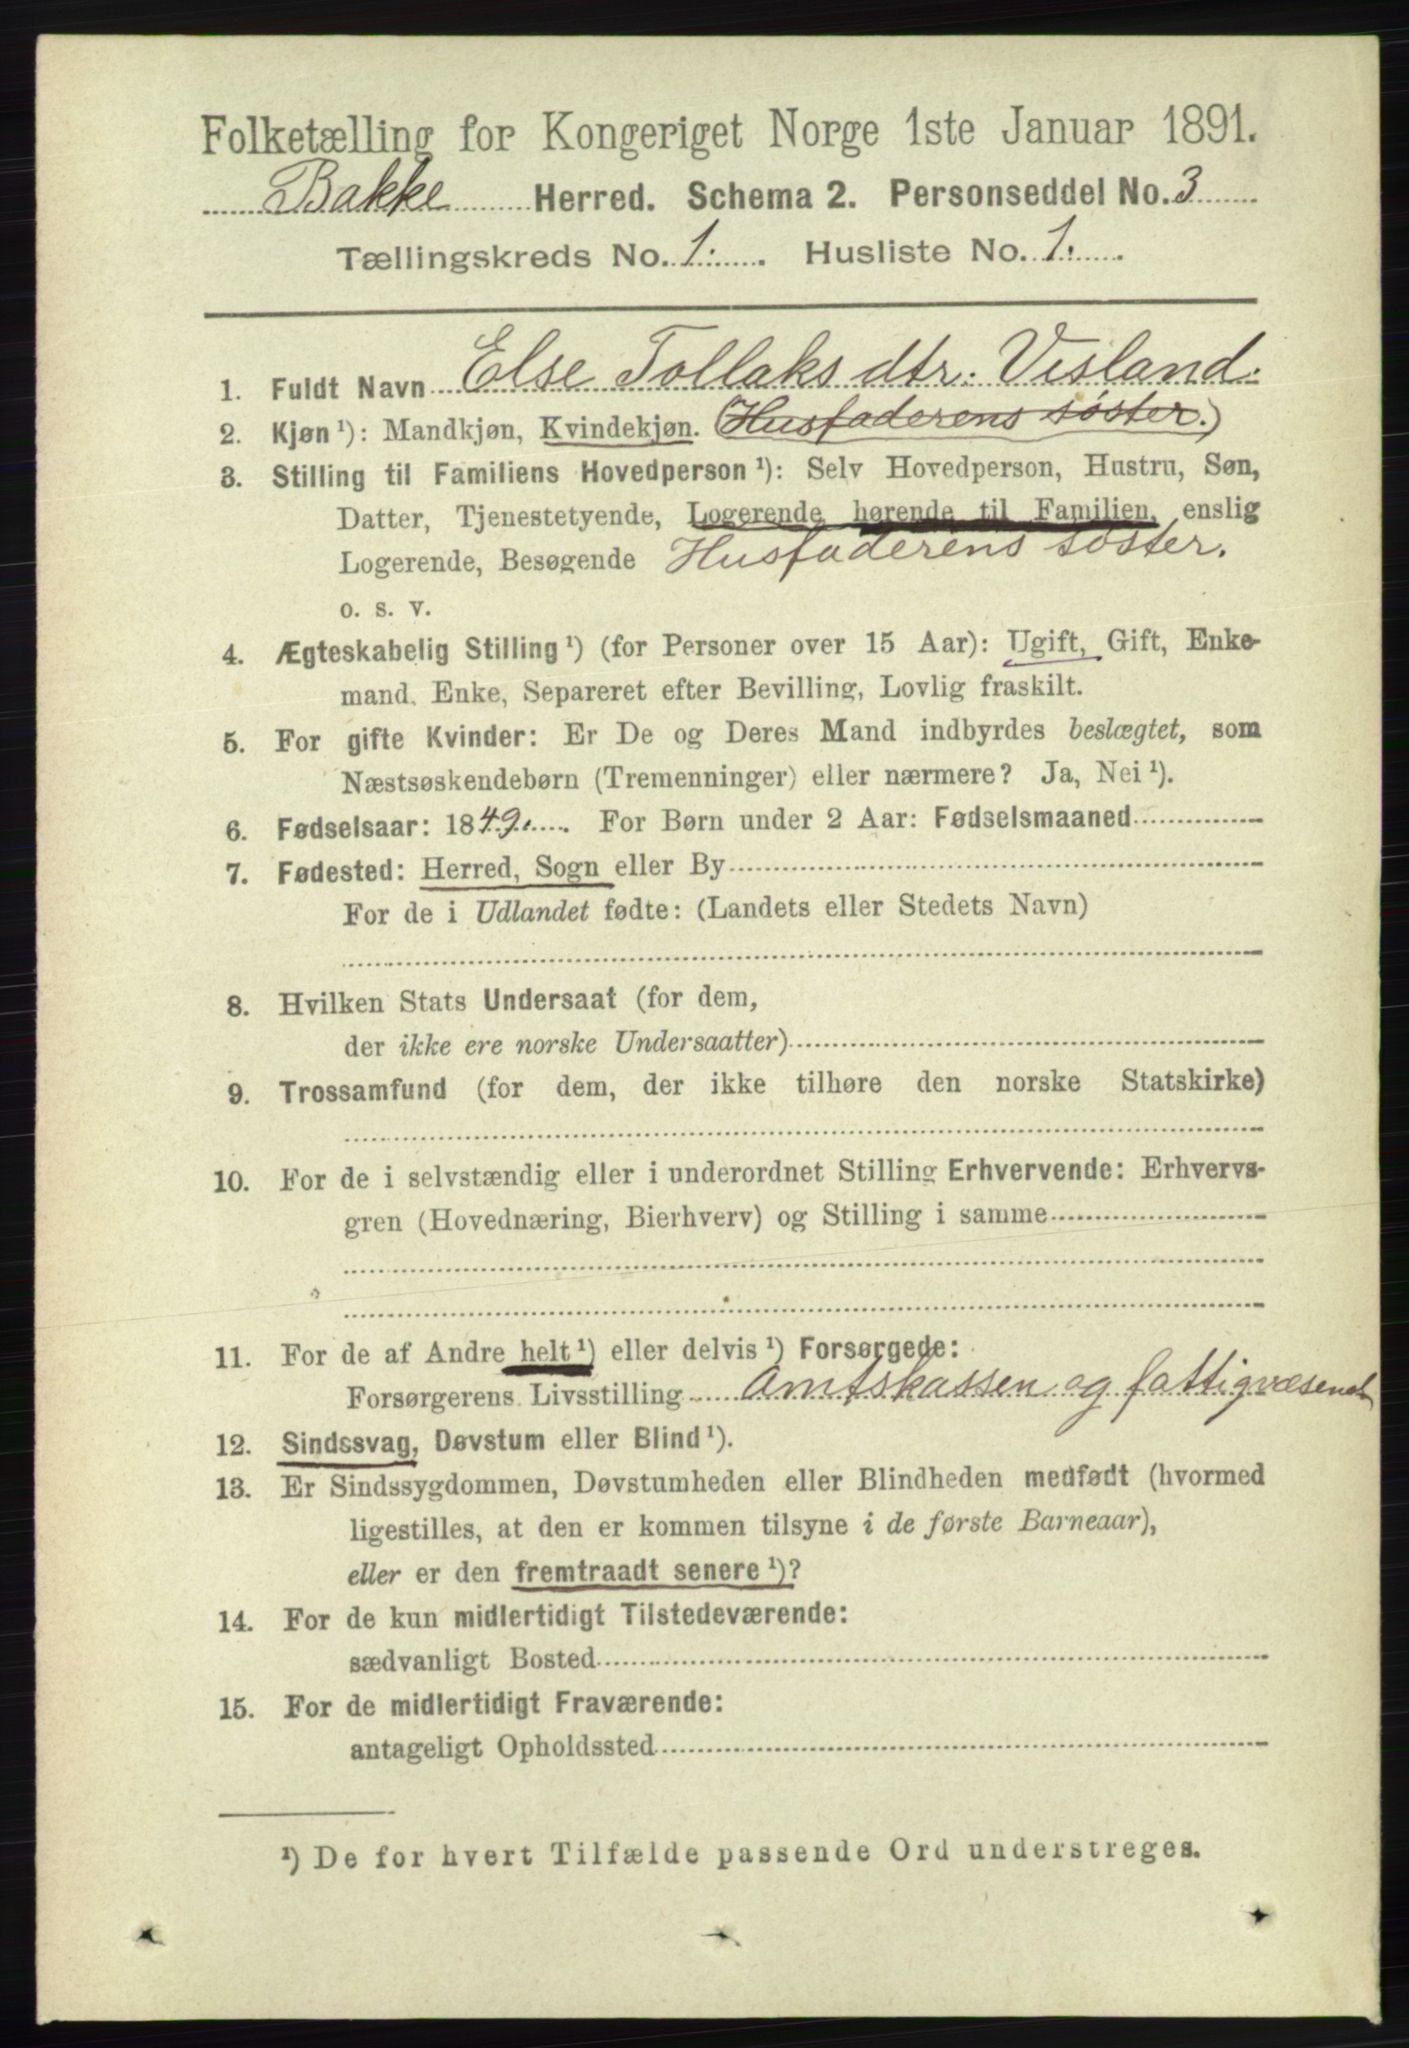 Folketælling for Kongeriget Norge 1ste Januar 1891.
Bakke Herred. Schema 2. Personseddel No. 3
Tællingskreds No. 1. Husliste No. 1.
1. Fuldt Navn Else Tollaks dtr. Visland.
2. Kjøn¹): Mandkjøn, Kvindekjøn. (Husfaderens søster.)
3. Stilling til Familiens Hovedperson¹): Selv Hovedperson, Hustru, Søn,
Datter, Tjenestetyende, Logerende hørende til Familien, enslig
Logerende, Besøgende Husfaderens søster.
o. s. v.
4. Ægteskabelig Stilling¹) (for Personer over 15 Aar): Ugift, Gift, Enke-
mand, Enke, Separeret efter Bevilling, Lovlig fraskilt.
5. For gifte Kvinder: Er De og Deres Mand indbyrdes beslægtet, som
Næstsøskendebørn (Tremenninger) eller nærmere? Ja, Nei¹).
6. Fødselsaar: 1849. For Børn under 2 Aar: Fødselsmaaned
7. Fødested: Herred, Sogn eller By
For de i Udlandet fødte: (Landets eller Stedets Navn)
8. Hvilken Stats Undersaat (for dem,
der ikke ere norske Undersaatter)
9. Trossamfund (for dem, der ikke tilhøre den norske Statskirke)
10. For de i selvstændig eller i underordnet Stilling Erhvervende: Erhvervs-
gren (Hovednæring, Bierhverv) og Stilling i samme
11. For de af Andre helt¹) eller delvis¹) Forsørgede:
Forsørgerens Livsstilling Amtskassen og fattigvæsenet
12. Sindssvag, Døvstum eller Blind¹).
13. Er Sindssygdommen, Døvstumheden eller Blindheden medfødt (hvormed
ligestilles, at den er kommen tilsyne i de første Barneaar),
eller er den fremtraadt senere¹)?
14. For de kun midlertidigt Tilstedeværende:
sædvanligt Bosted
15. For de midlertidigt Fraværende:
antageligt Opholdssted
¹) De for hvert Tilfælde passende Ord understreges.